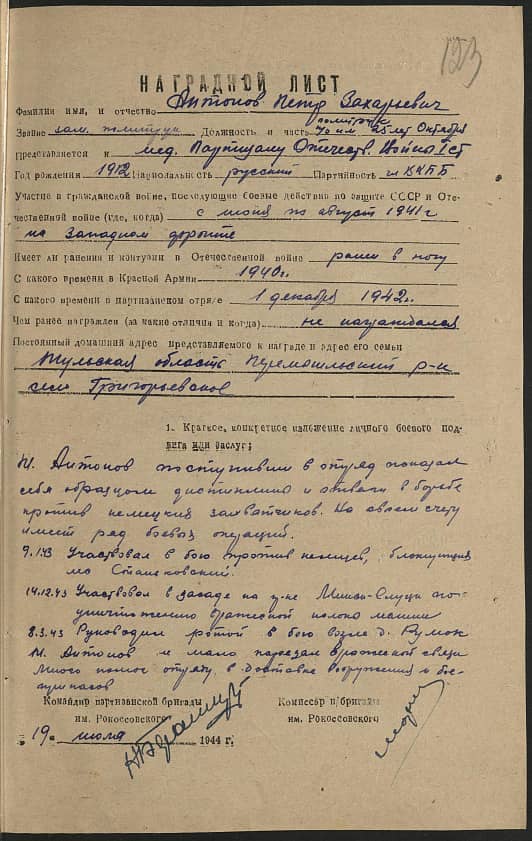 123
НАГРАДНОЙ ЛИСТ
Фамилия имя, и отчество Антонов Петр Захарьевич
политрук
Звание зам. политрук Должность и часть им. 25 лет Октября
Представляется к мед. Партизану Отечеств. Войны I ст
Год рождения 1912 Национальность русский Партийность чл ВКПБ
Участие в гражданской войне, последующие боевые действия по защите СССР и Оте-
чественной войне (где, когда) с июня по август 1941 г
на западном фронте
Имеет ли ранения и контузии в Отечественной войне ранен в ногу
С какого времени в Красной Армии 1940г.
С какого времени в партизанском отряде 1 декабря 1942г.
Чем ранее награжден (за какие отличия и когда) не награждался
Постоянный домашний адрес представляемого к награде и адрес его семьи
Тульская область Перемышльский р-н
село Григорьевское
1. Краткое, конкретное изложение личного боевого под-
вига или заслуг:
т. Антонов поступивши в отряд показал
себя образцом дисциплины и отваги в борьбе
против немецких захватчиков. На своем счету
имеет ряд боевых операций.
9.1.43 Участвовал в бою против немцев, блокирующих
14.12.43 Участвовал в засаде на Минск-Слуцк по
уничтожению вражеской машин
8.3.43 Руководил ротой в бою возле д.
т. Антонов не мало порезал вражеской связи
Много помог отряду в доставке вооружения и бое-
припасов
Командир партизанской бригады Комиссар п/бригады
им. Рокоссовского им. Рокоссовского
19 июля 1944 г.